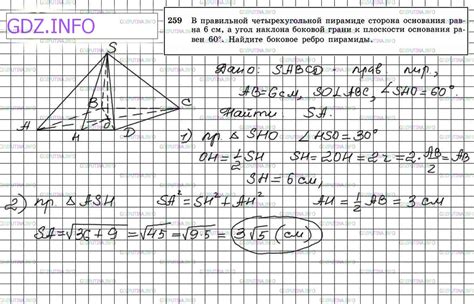 GDZ.INFO
259 В правильной четырехугольной пирамиде сторона основания рав-
на 6 см, а угол наклона боковой грани к плоскости основания ра-
вен 60°. Найдите боковое ребро пирамиды.
Дано: SABCD - прав. пир.,
AB=6см, SO⊥ABC, ∠SHO=60°
Найти SA.
S
B
C
A
O
H
D
1) пр. △SHO ∠HSO=30°
OH=1/2 SH SH=2OH=2r=2·AB/2=AB
SH=6см,
2) пр △ASH SA²=SH²+AH² AH=1/2 AB=3 см
SA=√36+9=√45=√9·5=3√5 (см)